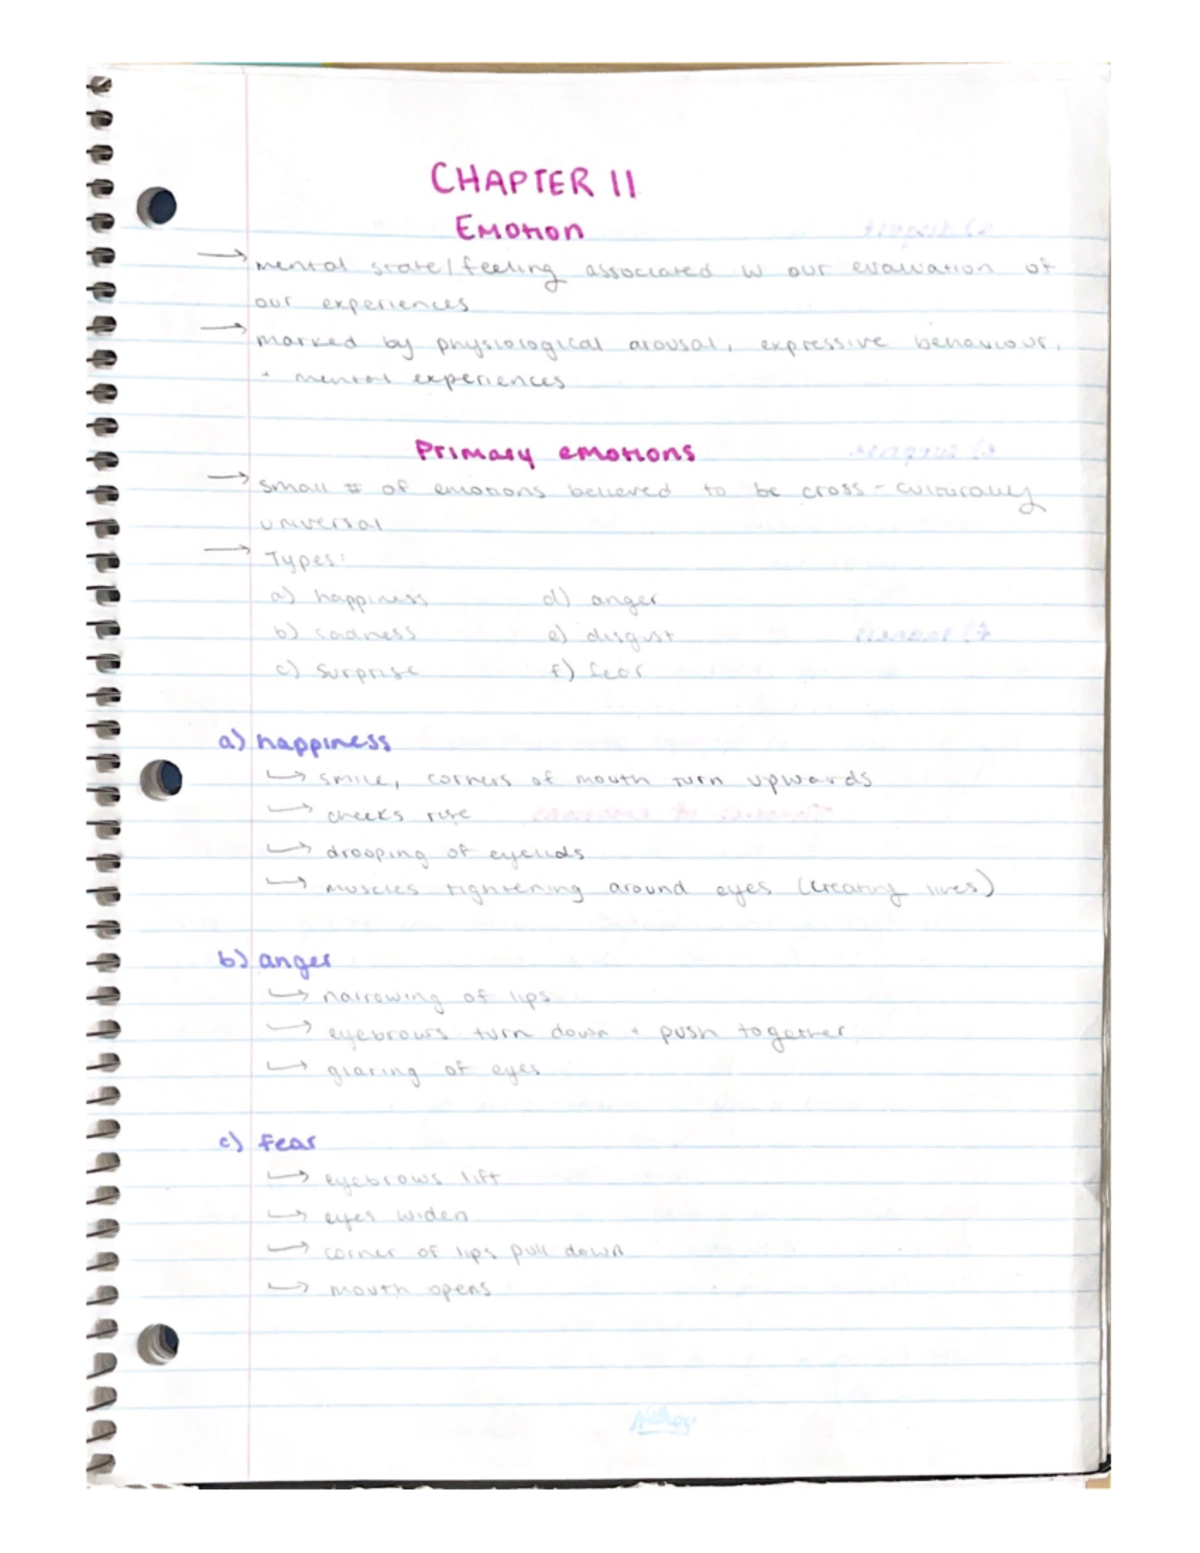 CHAPTER 11
Emotion
→ mental state/feeling associated w our evaluation of
our experiences
→ marked by physiological arousal, expressive behaviour,
+ mental experiences
Primary emotions
→ small # of emotions believed to be cross-culturally
universal
→ Types:
a) happiness d) anger
b) sadness e) disgust
c) surprise f) fear
a) happiness
↳ smile, corners of mouth turn upwards
↳ cheeks rise
↳ drooping of eyelids
↳ muscles tightening around eyes (creating lines)
b) anger
↳ narrowing of lips
↳ eyebrows turn down + push together
↳ glaring of eyes
c) fear
↳ eyebrows lift
↳ eyes widen
↳ corner of lips pull down
↳ mouth opens